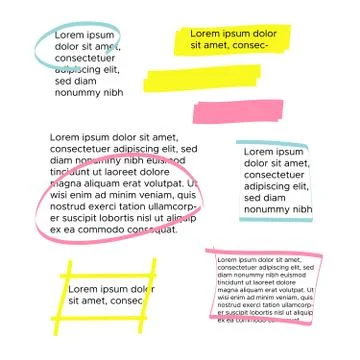 Lorem ipsum
dolor sit amet,
consectetuer
adipiscing elit,
sed diam
nonummy nibh
Lorem ipsum dolor
sit amet, consec-
Lorem ipsum dolor sit amet,
consectetuer adipiscing elit, sed
diam nonummy nibh euismod
tincidunt ut laoreet dolore
magna aliquam erat volutpat. Ut
wisi enim ad minim veniam, quis
nostrud exerci tation ullamcorp-
er suscipit lobortis nisl ut aliquip
ex ea commodo consequat.
Lorem ipsum
dolor sit amet,
consectetuer
adipiscing elit,
sed diam
nonummy nibh
Lorem ipsum dolor
sit amet, consec
Lorem ipsum dolor sit amet,
consectetuer adipiscing elit, sed
diam nonummy nibh euismod
tincidunt ut laoreet dolore
magna aliquam erat volutpat. Ut
wisi enim ad minim veniam, quis
nostrud exerci tation ullamcorp-
er suscipit lobortis nisl ut aliquip
ex ea commodo consequat.